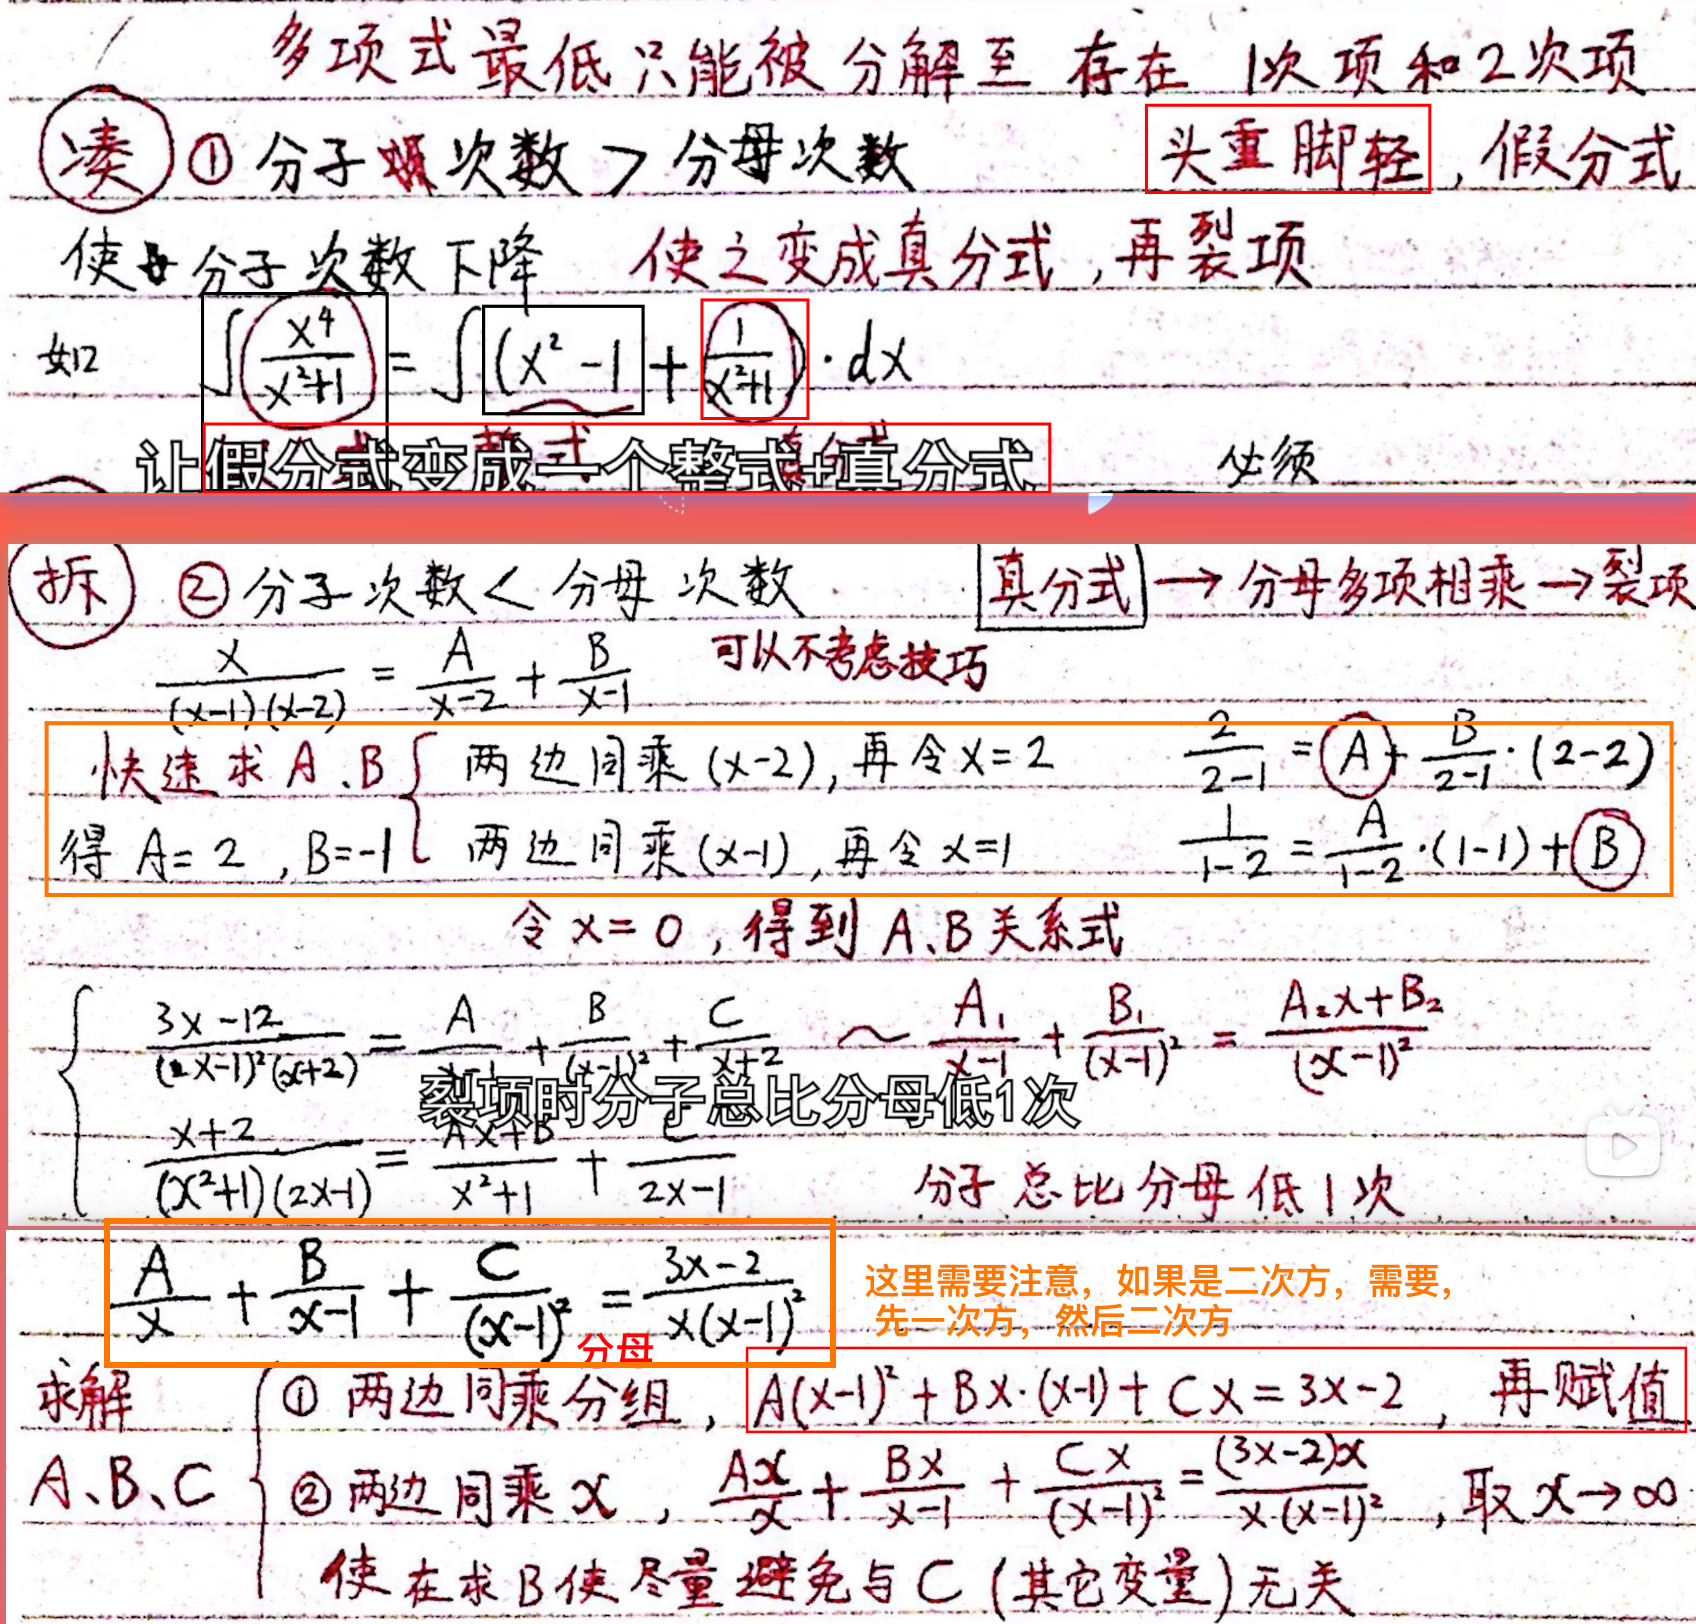 多项式最低只能被分解至 存在 1次项和2次项
凑 ① 分子 次数 > 分母次数 头重脚轻，假分式
使 分子次数下降 使之变成真分式，再裂项
如 ∫ x⁴/(x²+1) = ∫ (x²-1 + 1/(x²+1))·dx
让假分式变成一个整式+真分式 必须
拆 ② 分子次数 < 分母次数 真分式 → 分母多项相乘 → 裂项
x/((x-1)(x-2)) = A/(x-2) + B/(x-1) 可以不考虑技巧
快速求 A、B { 两边同乘 (x-2)，再令 x=2 2/(2-1) = A + B/(2-1)·(2-2)
得 A=2，B=-1 两边同乘 (x-1)，再令 x=1 1/(1-2) = A/(1-2)·(1-1)+B
令 x=0，得到 A、B 关系式
(3x-12)/((x-1)²(x+2)) = A/(x-1) + B/(x-1)² + C/(x+2) ～ A₁/(x-1) + B₁/(x-1)² = (A₂x+B₂)/(x-1)²
裂项时分子总比分母低1次
(x+2)/((x²+1)(2x-1)) = (Ax+B)/(x²+1) + C/(2x-1) 分子总比分母低1次
A/x + B/(x-1) + C/(x-1)² = (3x-2)/(x(x-1)²)
这里需要注意，如果是二次方，需要，
先一次方，然后二次方
分母
求解 { ① 两边同乘分组，A(x-1)²+Bx·(x-1)+Cx=3x-2，再赋值
A、B、C ② 两边同乘 x，Ax/x + Bx/(x-1) + Cx/(x-1)² = (3x-2)x/(x·(x-1)²)，取 x→∞
使在求B使尽量避免与C (其它变量) 无关